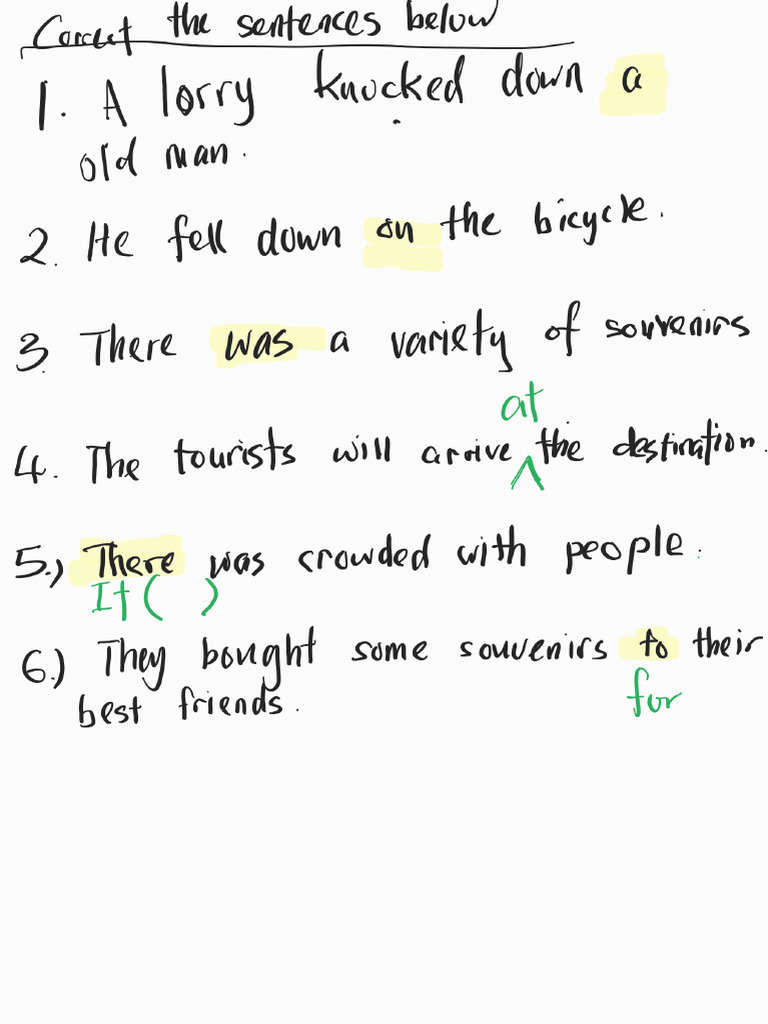 Correct the sentences below
1. A lorry knocked down a
old man.
2. He fell down on the bicycle.
3. There was a variety of souvenirs
at
4. The tourists will arrive ^ the destination.
5.) There was crowded with people.
It ( )
6.) They bought some souvenirs to their
for
best friends.